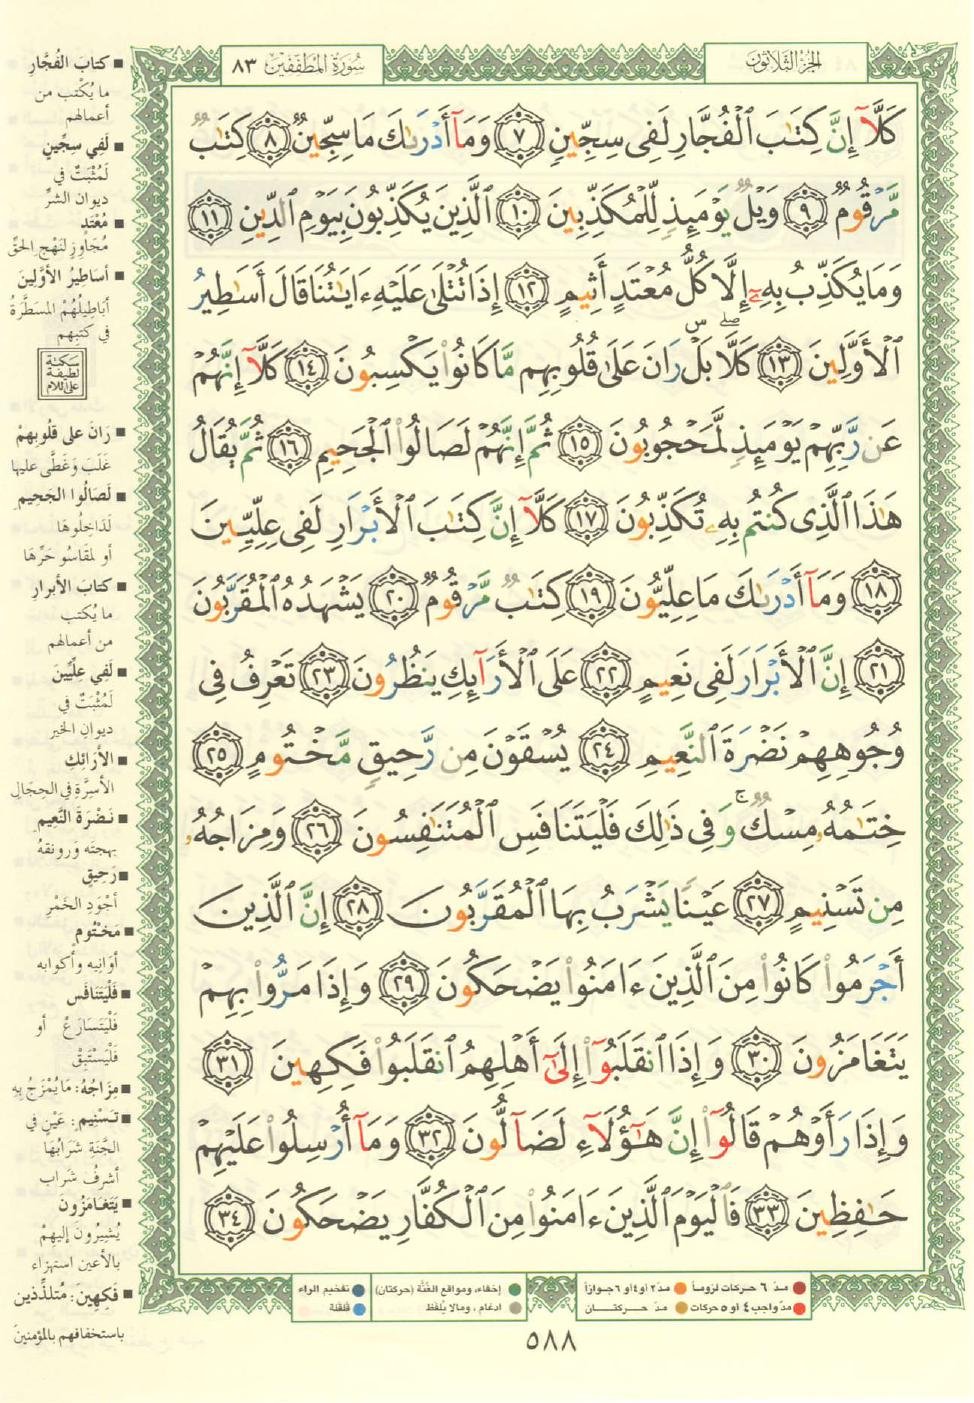 الجزء الثلاثون
سورة المطففين ٨٣
كَلَّآ إِنَّ كِتَٰبَ ٱلْفُجَّارِ لَفِى سِجِّينٍ ٧ وَمَآ أَدْرَىٰكَ مَا سِجِّينٌ ٨ كِتَٰبٌ
مَّرْقُومٌ ٩ وَيْلٌ يَوْمَئِذٍ لِّلْمُكَذِّبِينَ ١٠ ٱلَّذِينَ يُكَذِّبُونَ بِيَوْمِ ٱلدِّينِ ١١
وَمَا يُكَذِّبُ بِهِۦٓ إِلَّا كُلُّ مُعْتَدٍ أَثِيمٍ ١٢ إِذَا تُتْلَىٰ عَلَيْهِ ءَايَٰتُنَا قَالَ أَسَٰطِيرُ
ٱلْأَوَّلِينَ ١٣ كَلَّا ۖ بَلْ ۜ رَانَ عَلَىٰ قُلُوبِهِم مَّا كَانُوا۟ يَكْسِبُونَ ١٤ كَلَّآ إِنَّهُمْ
عَن رَّبِّهِمْ يَوْمَئِذٍ لَّمَحْجُوبُونَ ١٥ ثُمَّ إِنَّهُمْ لَصَالُوا۟ ٱلْجَحِيمِ ١٦ ثُمَّ يُقَالُ
هَٰذَا ٱلَّذِى كُنتُم بِهِۦ تُكَذِّبُونَ ١٧ كَلَّآ إِنَّ كِتَٰبَ ٱلْأَبْرَارِ لَفِى عِلِّيِّينَ
١٨ وَمَآ أَدْرَىٰكَ مَا عِلِّيُّونَ ١٩ كِتَٰبٌ مَّرْقُومٌ ٢٠ يَشْهَدُهُ ٱلْمُقَرَّبُونَ
٢١ إِنَّ ٱلْأَبْرَارَ لَفِى نَعِيمٍ ٢٢ عَلَى ٱلْأَرَآئِكِ يَنظُرُونَ ٢٣ تَعْرِفُ فِى
وُجُوهِهِمْ نَضْرَةَ ٱلنَّعِيمِ ٢٤ يُسْقَوْنَ مِن رَّحِيقٍ مَّخْتُومٍ ٢٥
خِتَٰمُهُۥ مِسْكٌ ۚ وَفِى ذَٰلِكَ فَلْيَتَنَافَسِ ٱلْمُتَنَٰفِسُونَ ٢٦ وَمِزَاجُهُۥ
مِن تَسْنِيمٍ ٢٧ عَيْنًا يَشْرَبُ بِهَا ٱلْمُقَرَّبُونَ ٢٨ إِنَّ ٱلَّذِينَ
أَجْرَمُوا۟ كَانُوا۟ مِنَ ٱلَّذِينَ ءَامَنُوا۟ يَضْحَكُونَ ٢٩ وَإِذَا مَرُّوا۟ بِهِمْ
يَتَغَامَزُونَ ٣٠ وَإِذَا ٱنقَلَبُوٓا۟ إِلَىٰٓ أَهْلِهِمُ ٱنقَلَبُوا۟ فَكِهِينَ ٣١
وَإِذَا رَأَوْهُمْ قَالُوٓا۟ إِنَّ هَٰٓؤُلَآءِ لَضَآلُّونَ ٣٢ وَمَآ أُرْسِلُوا۟ عَلَيْهِمْ
حَٰفِظِينَ ٣٣ فَٱلْيَوْمَ ٱلَّذِينَ ءَامَنُوا۟ مِنَ ٱلْكُفَّارِ يَضْحَكُونَ ٣٤
■ كتابَ الفُجَّارِ
ما يُكْتَب من
أعمالهم
■ لَفِي سِجِّينٍ
لَمُثْبَتٌ في
ديوان الشرِّ
■ مُعْتَدٍ
مُجَاوِزٍ لنَهْجِ الحَقِّ
■ أساطيرُ الأوَّلِينَ
أبَاطِيلُهُمْ المسَطَّرةُ
في كتبِهم
سكتة
لطيفة
على اللام
■ رَانَ على قلُوبِهمْ
غَلَبَ وَغَطَّى عليها
■ لَصَالُوا الجَحِيمِ
لَدَاخِلُوهَا
أو لمقَاسُو حَرِّهَا
■ كتابَ الأبرارِ
ما يُكتب
من أعمالهم
■ لَفِي عِلِّيِّينَ
لَمُثْبَتٌ في
ديوانِ الخير
■ الأرَائِكِ
الأسِرَّةِ في الحِجَالِ
■ نَضْرَةَ النَّعيمِ
بهجتَه وَرونقَهُ
■ رَحِيقٍ
أجْوَدِ الخَمْرِ
■ مَخْتُومٍ
أوَانيه وأكوابه
■ فَلْيَتَنَافَسِ
فَلْيَتَسَارَعْ أو
فَلْيَسْتَبِقْ
■ مِزَاجُهُ: مَا يُمْزَجُ بِهِ
■ تَسْنِيمٍ: عَيْنٍ في
الجَنَّةِ شَرَابُهَا
أشرفُ شَرَاب
■ يَتَغَامَزُونَ
يُشِيرُونَ إليهِمْ
بالأعين استهزاء
■ فَكِهِينَ: مُتَلَذِّذين
باستخفافهم بالمؤمنين
مدّ ٦ حركات لزوماً مدّ ٢ أو ٤ أو ٦ جوازاً
مدّ واجب ٤ أو ٥ حركات مدّ حركتان
إخفاء، ومواقع الغُنَّة (حركتان) تفخيم الراء
ادغام ، وما لا يُلفَظ قلقلة
٥٨٨